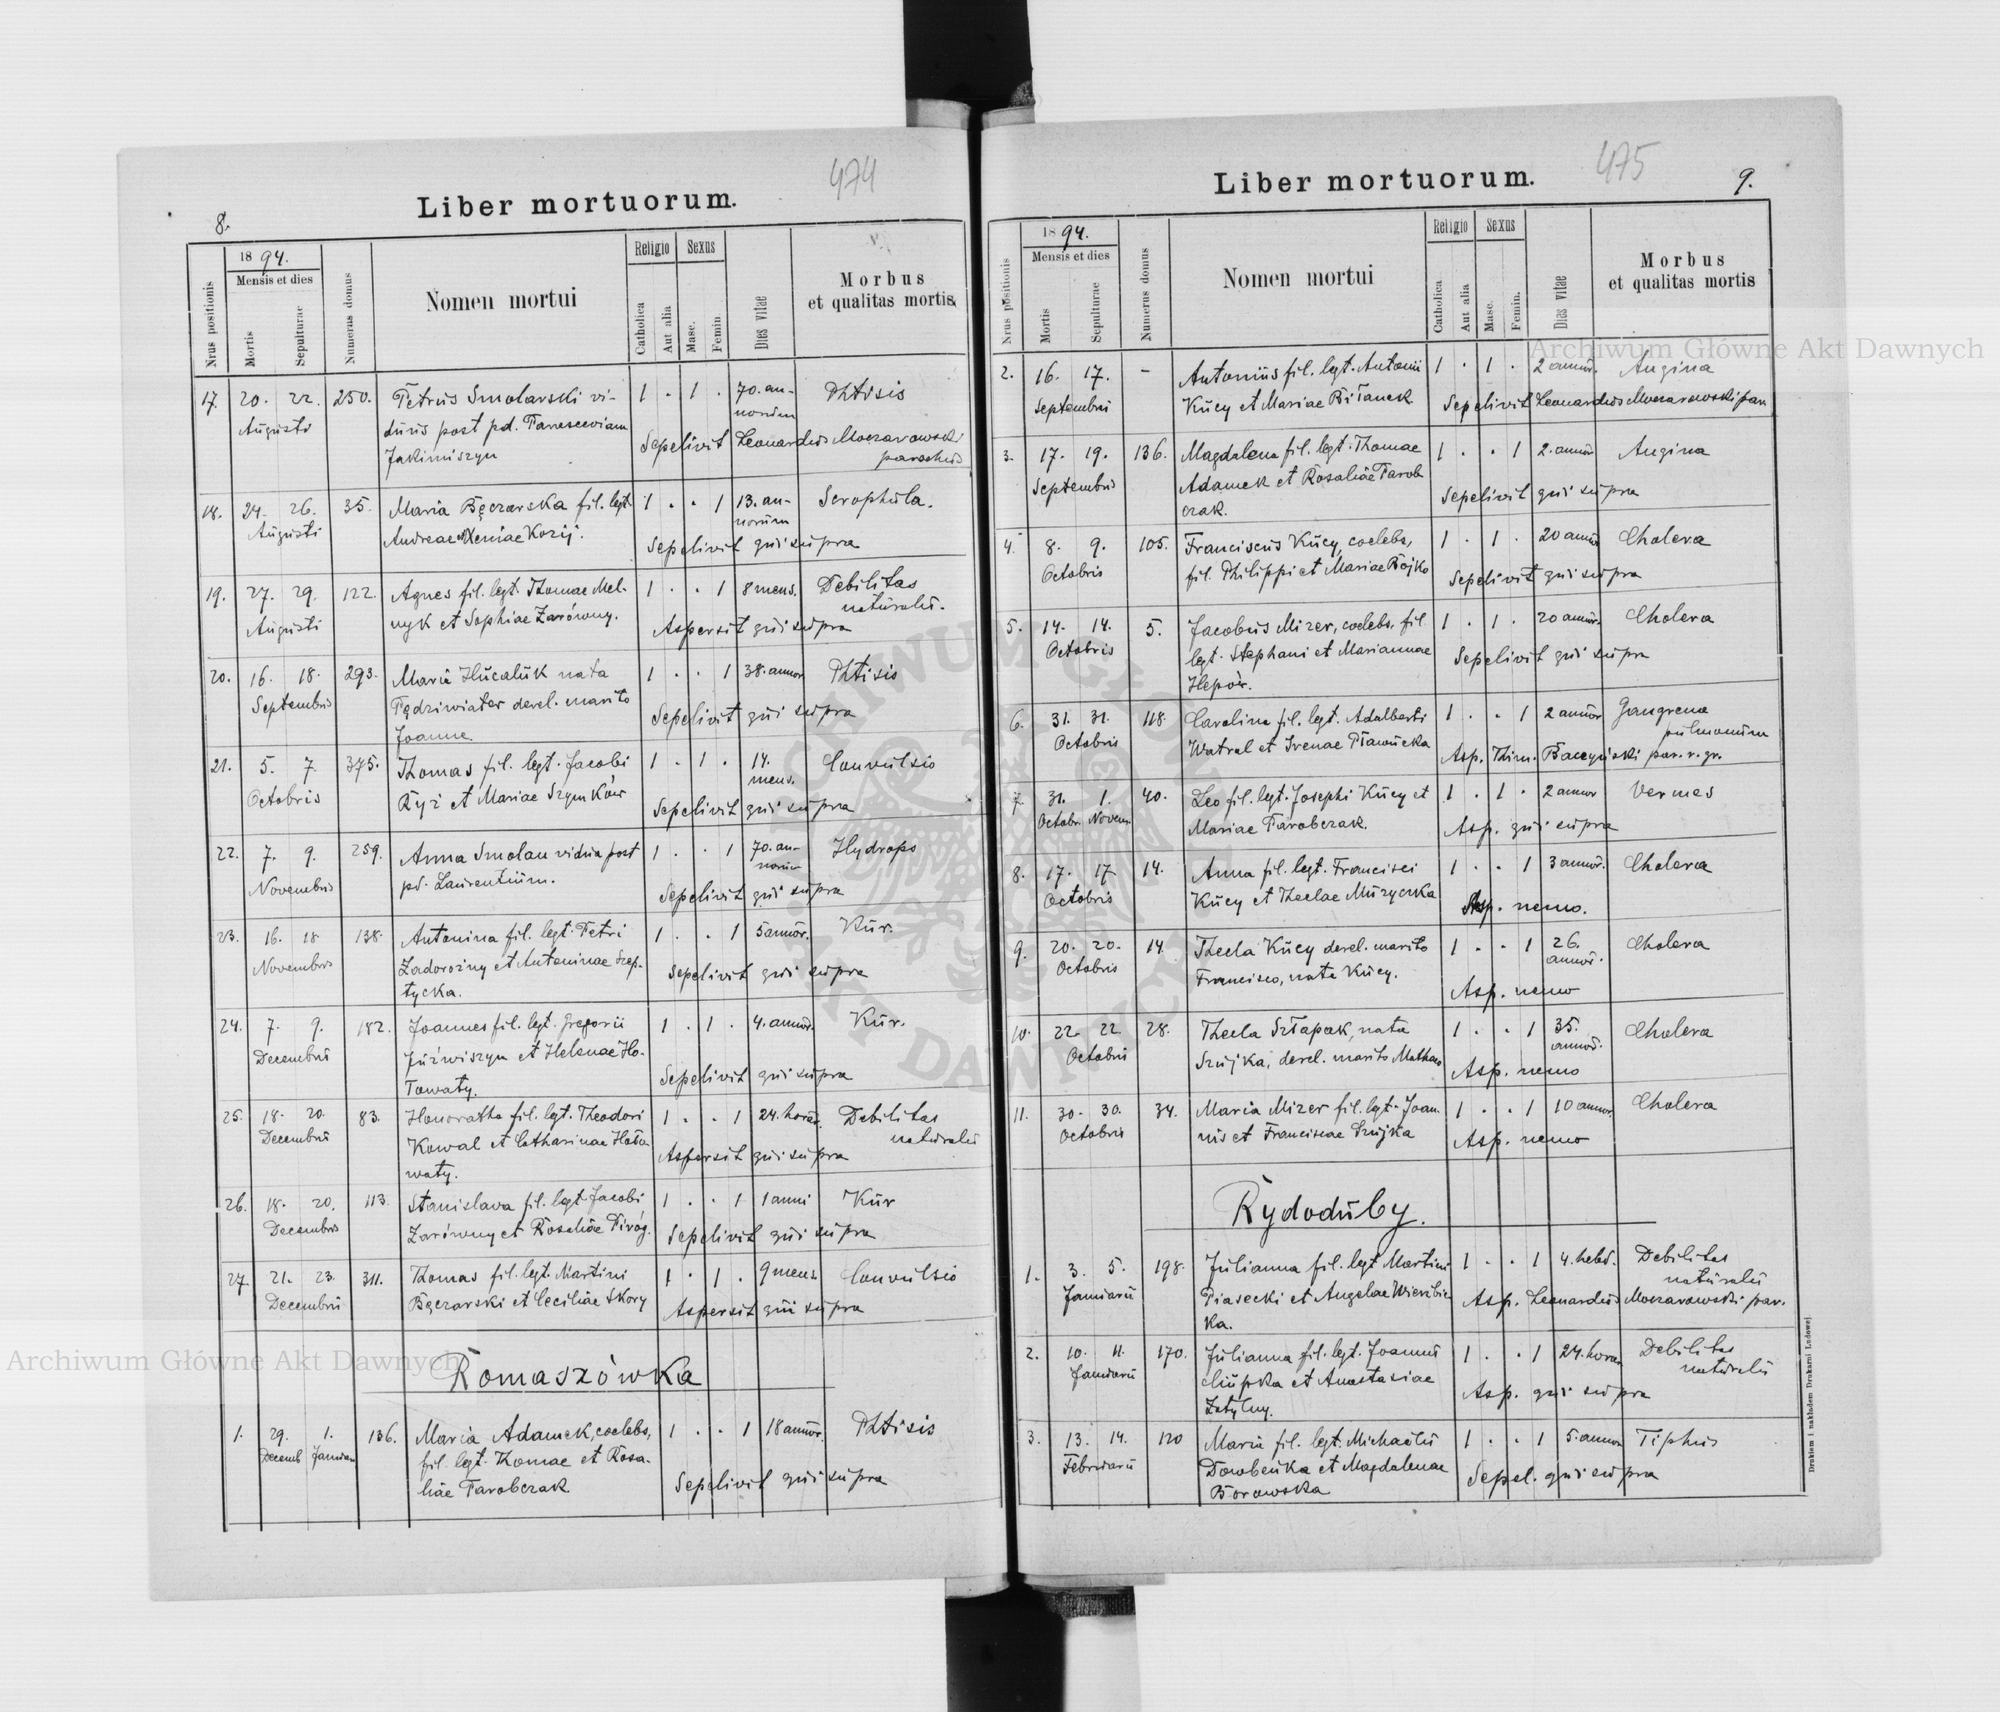 474
8.
Liber mortuorum.
Nrus positionis
1894.
Mensis et dies
Mortis
Sepulturae
Numerus domus
Nomen mortui
Religio
Catholica
Aut alia
Sexus
Masc.
Femin.
Dies vitae
Morbus
et qualitas mortis
17. 20. 22. 250. Petrus Smolarski vi- 1 . 1 . 70. an- Phtisis
Augusti duus post pd. norum
Jakimiszyn Sepelivit Leonardus Moczarowski
parochus
18. 24. 26. 35. Maria Bęczarska fil. legt. 1 . . 1 13. an- Scrophula.
Augusti Andreae et Xeniae Kozij. norum
Sepelivit qui supra
19. 27. 29. 122. Agnes fil. legt. Thomae Mel- 1 . . 1 8 mens. Debilitas
Augusti nyk et Sophiae Zarówny. naturalis.
Aspersit qui supra
20. 16. 18. 293. Maria Hucaluk nata 1 . . 1 38. annor. Phtisis
Septembris Pędziwiater derel. marito
Joanne. Sepelivit qui supra
21. 5. 7. 375. Thomas fil. legt. Jacobi 1 . 1 . 14. Convulsio
Octobris Ryż et Mariae Szymków mens.
Sepelivit qui supra
22. 7. 9. 259. Anna Smolan vidua post 1 . . 1 70. an- Hydrops
Novembris pd. Laurentium. norum
Sepelivit qui supra
23. 16. 18 138. Antonina fil. legt. Petri 1 . . 1 5 annor. Kür.
Novembris Zadorożny et Antoninae Szep-
tycka. Sepelivit qui supra
24. 7. 9. 182. Joannes fil. legt. Gregorii 1 . 1 . 4. annor. Kür.
Decembris Juźwiszyn et Helenae Ho-
łowaty. Sepelivit qui supra
25. 18. 20. 83. Honoratha fil. legt. Theodori 1 . . 1 24. horar. Debilitas
Decembris Kowal et Catharinae Hoło- naturalis
waty. Aspersit qui supra
26. 18. 20. 113. Stanislava fil. legt. Jacobi 1 . . 1 1 anni Kür
Decembris Zarówny et Rosaliae Piróg. Sepelivit qui supra
27. 21. 23. 311. Thomas fil. legt. Martini 1 . 1 . 9 mens. Convulsio
Decembris Bęczarski et Ceciliae Skory Aspersit qui supra
Romaszówka
1. 29. 1. 136. Maria Adamek, coelebs, 1 . . 1 18 annor. Phtisis
Decemb Januarii fil. legt. Thomae et Rosa-
liae Parobczak Sepelivit qui supra
475
9.
Liber mortuorum.
Nrus positionis
1894.
Mensis et dies
Mortis
Sepulturae
Numerus domus
Nomen mortui
Religio
Catholica
Aut alia
Sexus
Masc.
Femin.
Dias vitae
Morbus
et qualitas mortis
2. 16. 17. - Antonius fil. legt. Antonii 1 . 1 . 2 annor. Angina
Septembris Kucy et Mariae Biłanek Sepelivit Leonardus Moczarowski par.
3. 17. 19. 136. Magdalena fil. legt. Thomae 1 . . 1 2. annor Angina
Septembris Adamek et Rosaliae Parob
czak. Sepelivit qui supra
4. 8. 9. 105. Franciscus Kucy, coelebs, 1 . 1 . 20 annor Cholera
Octobris fil. Philippi et Mariae Bojko Sepelivit qui supra
5. 14. 14. 5. Jacobus Mizer, coelebs, fil. 1 . 1 . 20 annor. Cholera
Octobris legt. Stephani et Mariannae Sepelivit qui supra
6. 31. 31. 118. Carolina fil. legt. Adalberti 1 . . 1 2 annor Gangrena
Octobris Watral et Irenae Pławucka pulmonum
Asp. Thim. Baczyński par. r. gr.
7. 31. 1. 40. Leo fil. legt. Josephi Kucy et 1 . 1 . 2 annor Vermes
Octobr. Novem. Mariae Parobczak. Asp. qui supra
8. 17. 17 14. Anna fil. legt. Francisci 1 . . 1 3 annor. Cholera
Octobris Kucy et Theclae Muzyczka Asp. nemo.
9. 20. 20. 14. Thecla Kucy derel. marito 1 . . 1 26. Cholera
Octobris Francisco, nata Kucy. annor.
Asp. nemo
10. 22. 22. 28. Thecla Szłapak, nata 1 . . 1 35. Cholera
Octobris Szujka, derel. marito Mathaeo annor.
Asp. nemo
11. 30. 30. 34. Maria Mizer fil. legt. Joan- 1 . . 1 10 annor. Cholera
Octobris nis et Franciscae Szujka Asp. nemo
Rydoduby.
1. 3. 5. 198. Julianna fil. legt Martini 1 . . 1 4. hebd. Debilitas
Januarii Piasecki et Angelae Wierzbic naturalis
ka. Asp. Leonardus Moczarowski par.
2. 10. 11. 170. Julianna fil. legt. Joannis 1 . . 1 24. horar Debilitas
Januarii Ciupka et Anastasiae naturalis
Zatylny. Asp. qui supra
3. 13. 14. 120 Maria fil. legt. Michaëlis 1 . . 1 5. annor Tiphus
Februarii Dowbeńka et Magdalenae Sepel. qui supra
Borowska
Drukiem i nakładem Drukarni Ludowej
Archiwum Główne Akt Dawnych
Archiwum Główne Akt Dawnych
ARCHIWUM GŁÓWNE
AKT DAWNYCH